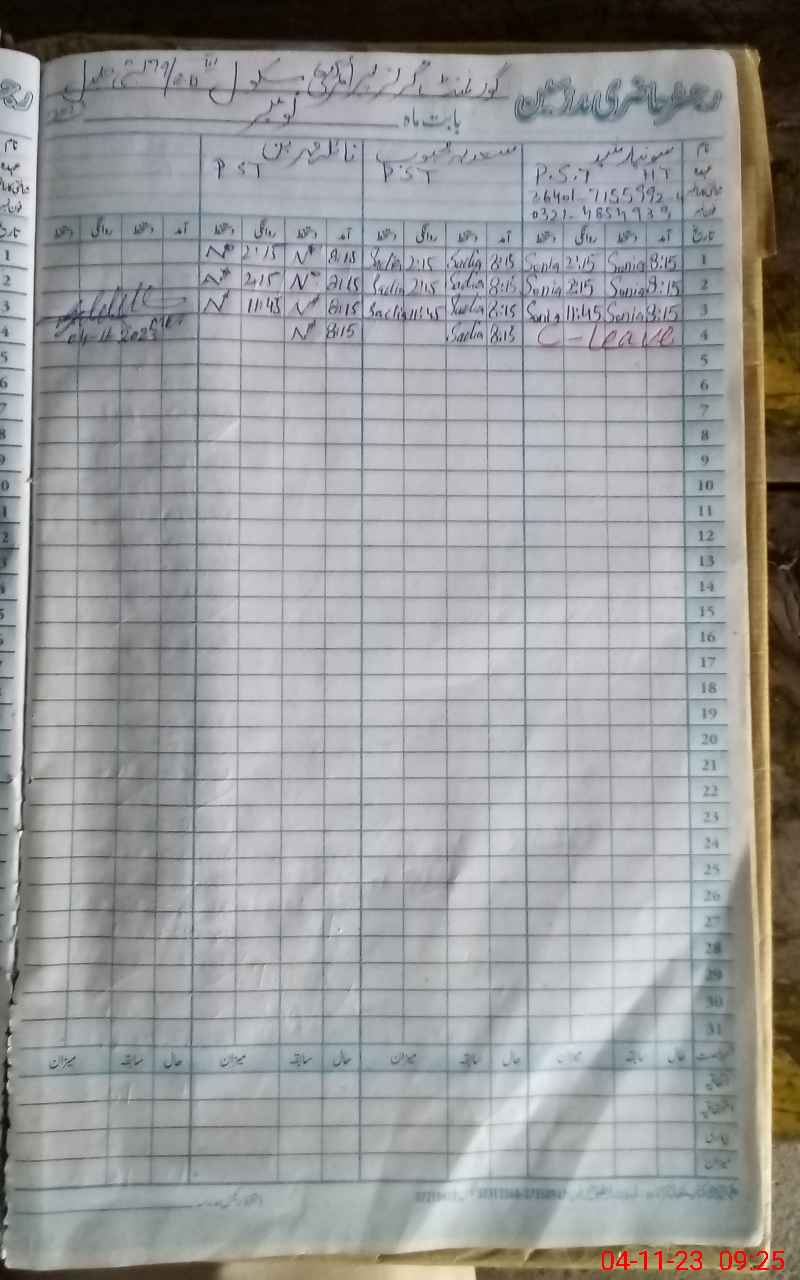 رجسٹر حاضری مدرسین گورنمنٹ گرلز پرائمری سکول
بابت ماہ نومبر
نام سونیا رشید سعدیہ محبوب نائلہ مہرین
عہدہ P.S.T HT P.ST P.ST
36401-7155992-4
فون نمبر 0321-4854939
تاریخ آمد دستخط روانگی دستخط آمد دستخط روانگی دستخط آمد دستخط روانگی دستخط آمد دستخط روانگی دستخط
1 8:15 Sonia 2:15 Sonia 8:15 Sadia 2:15 Sadia 8:15 N 2:15 N
2 8:15 Sonia 2:15 Sonia 8:15 Sadia 2:15 Sadia 8:15 N 2:15 N
3 8:15 Sonia 11:45 Sonia 8:15 Sadia 11:45 Sadia 8:15 N 11:45 N
4 C-Leave 8:15 Sadia 8:15 N 04-11-2023
5
6
7
8
9
10
11
12
13
14
15
16
17
18
19
20
21
22
23
24
25
26
27
28
29
30
31
حال سابقہ میزان حال سابقہ میزان حال سابقہ میزان حال سابقہ میزان
اتفاقیہ
استحقاقیہ
بیماری
میزان
04-11-23 09:25